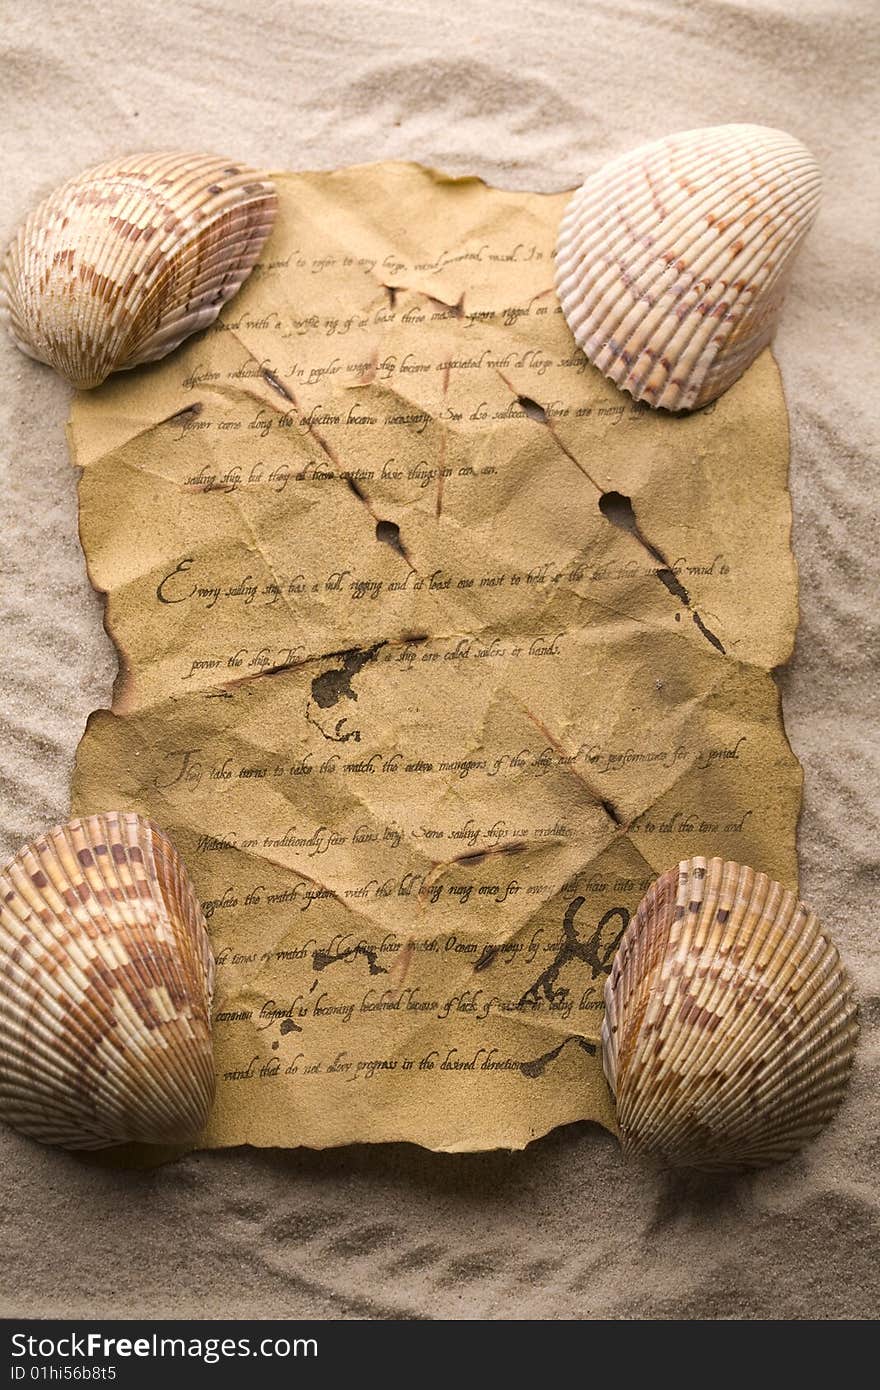 used to refer to any large, wind powered, vessel. In
vessel with a specific rig of at least three masts square rigged on
adjective redundant. In popular usage ship became associated with all large sailing
power came along the adjective became necessary. See also sailboat. There are many
sailing ship, but they all have certain basic things in
Every sailing ship has a hull, rigging and at least one mast to hold up the sails that use the wind to
power the ship. The a ship are called sailors or hands.
They take turns to take the watch, the active managers of the ship and her performance for a period.
Watches are traditionally four hours long. Some sailing ships use traditional to tell the time and
regulate the watch system, with the bell being rung once for every half hour into the
watch, Ocean journeys by sailing
common hazard is becoming becalmed because of lack of wind, or being blown
winds that do not allow progress in the desired direction.
StockFreeImages.com
ID 01hi56b8t5